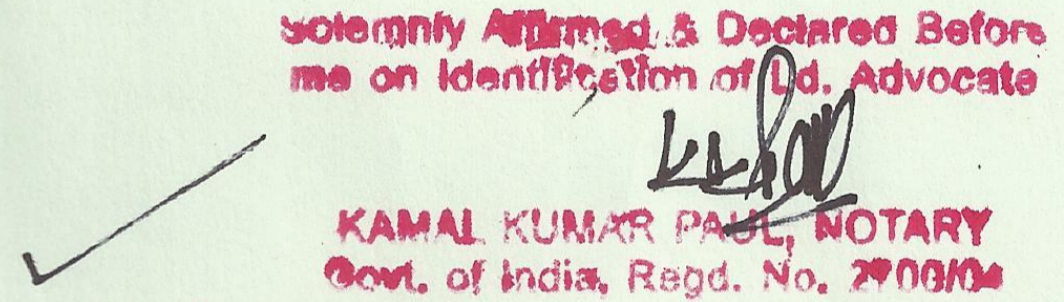 Solemnly Affirmed & Declared Before
me on Identification of Ld. Advocate
KKPaul
KAMAL KUMAR PAUL, NOTARY
Govt. of India, Regd. No.